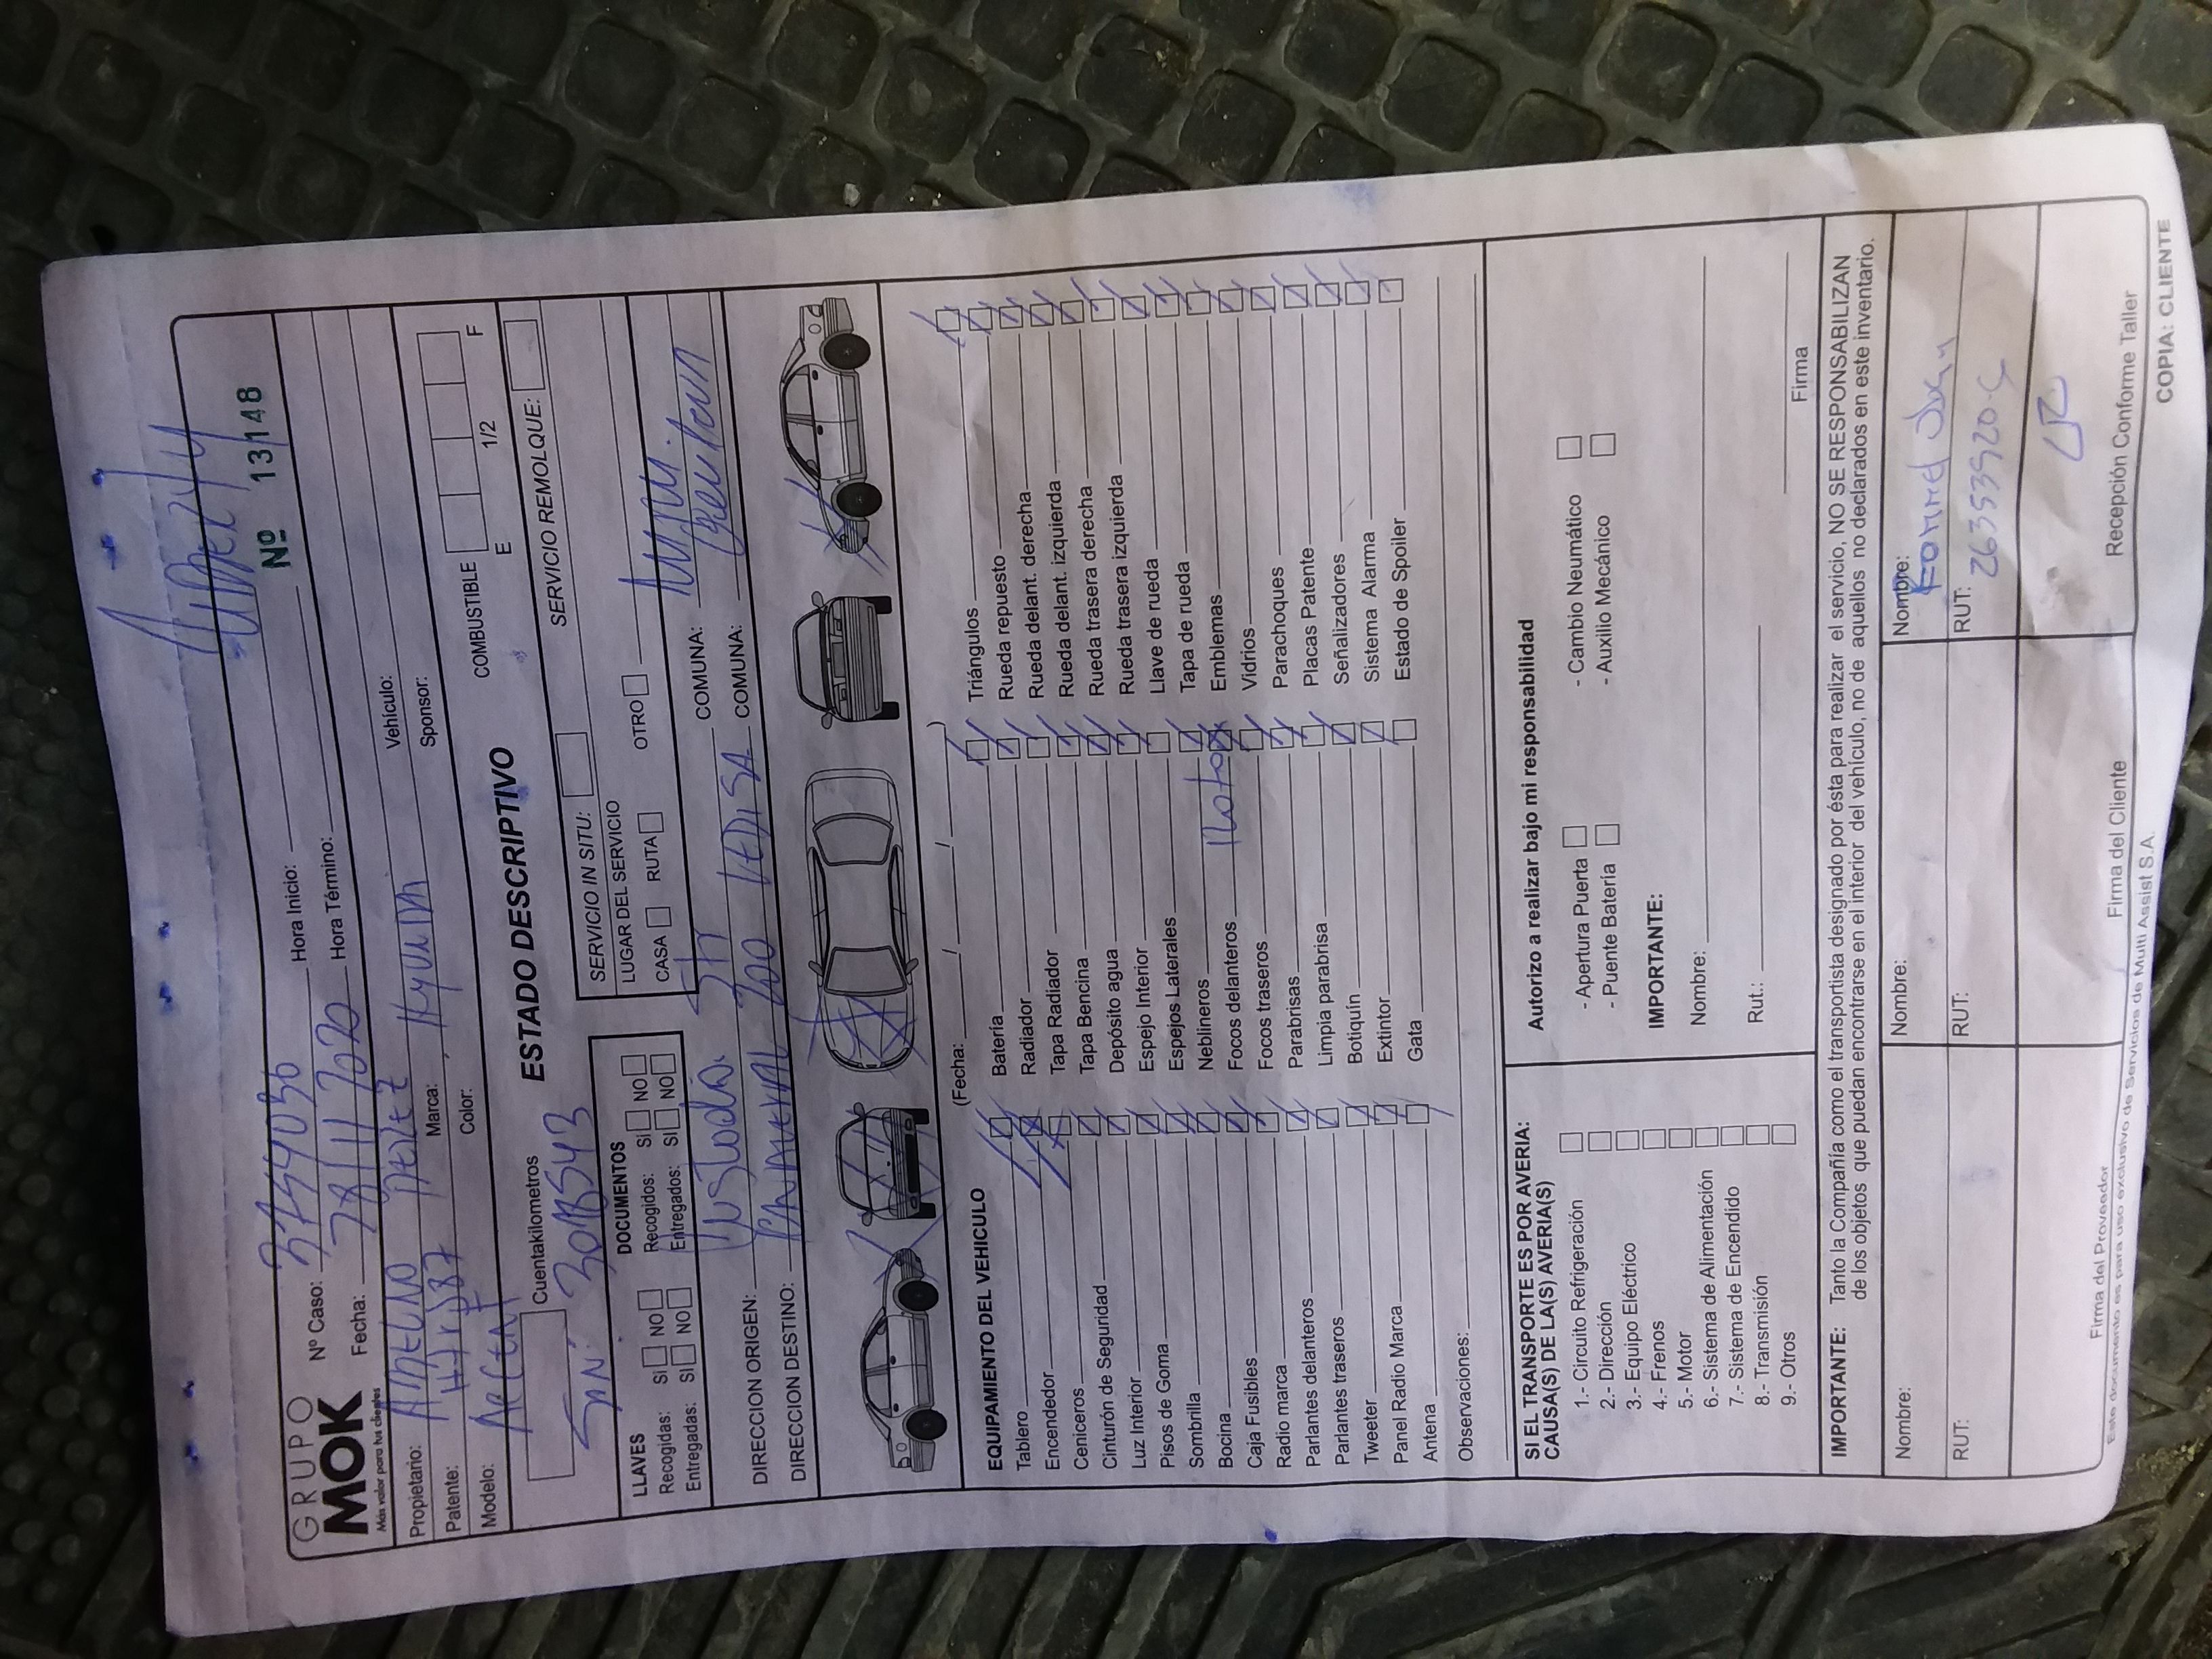 GRUPO
MOK
Más valor para tus clientes
Nº Caso:
Hora Inicio:
Nº 13148
Fecha: 28/11/2020
Hora Término:
Propietario:
Vehículo:
Patente:
Marca: Hyundai
Sponsor:
Modelo: Accent
Color:
Cuentakilometros
ESTADO DESCRIPTIVO
COMBUSTIBLE
E 1/2 F
SERVICIO IN SITU:
SERVICIO REMOLQUE:
LUGAR DEL SERVICIO
CASA RUTA OTRO
LLAVES
Recogidas: SI NO
Entregadas: SI NO
DOCUMENTOS
Recogidos: SI NO
Entregados: SI NO
DIRECCION ORIGEN: Custodia
COMUNA:
DIRECCION DESTINO:
COMUNA:
(Fecha: / / )
EQUIPAMIENTO DEL VEHICULO
Tablero
Encendedor
Ceniceros
Cinturón de Seguridad
Luz Interior
Pisos de Goma
Sombrilla
Bocina
Caja Fusibles
Radio marca
Parlantes delanteros
Parlantes traseros
Tweeter
Panel Radio Marca
Antena
Observaciones:
Batería
Radiador
Tapa Radiador
Tapa Bencina
Depósito agua
Espejo Interior
Espejos Laterales
Neblineros
Focos delanteros
Focos traseros
Parabrisas
Limpia parabrisa
Botiquín
Extintor
Gata
Triángulos
Rueda repuesto
Rueda delant. derecha
Rueda delant. izquierda
Rueda trasera derecha
Rueda trasera izquierda
Llave de rueda
Tapa de rueda
Emblemas
Vidrios
Parachoques
Placas Patente
Señalizadores
Sistema Alarma
Estado de Spoiler
SI EL TRANSPORTE ES POR AVERIA:
CAUSA(S) DE LA(S) AVERIA(S)
1.- Circuito Refrigeración
2.- Dirección
3.- Equipo Eléctrico
4.- Frenos
5.- Motor
6.- Sistema de Alimentación
7.- Sistema de Encendido
8.- Transmisión
9.- Otros
Autorizo a realizar bajo mi responsabilidad
- Apertura Puerta
- Puente Batería
- Cambio Neumático
- Auxilio Mecánico
IMPORTANTE:
Nombre:
Rut.:
Firma
IMPORTANTE: Tanto la Compañía como el transportista designado por ésta para realizar el servicio, NO SE RESPONSABILIZAN
de los objetos que puedan encontrarse en el interior del vehículo, no de aquellos no declarados en este inventario.
Nombre:
Nombre:
Nombre:
RUT:
RUT:
RUT:
Firma del Proveedor
Firma del Cliente
Recepción Conforme Taller
Este documento es para uso exclusivo de Servicios de Multi Assist S.A.
COPIA: CLIENTE